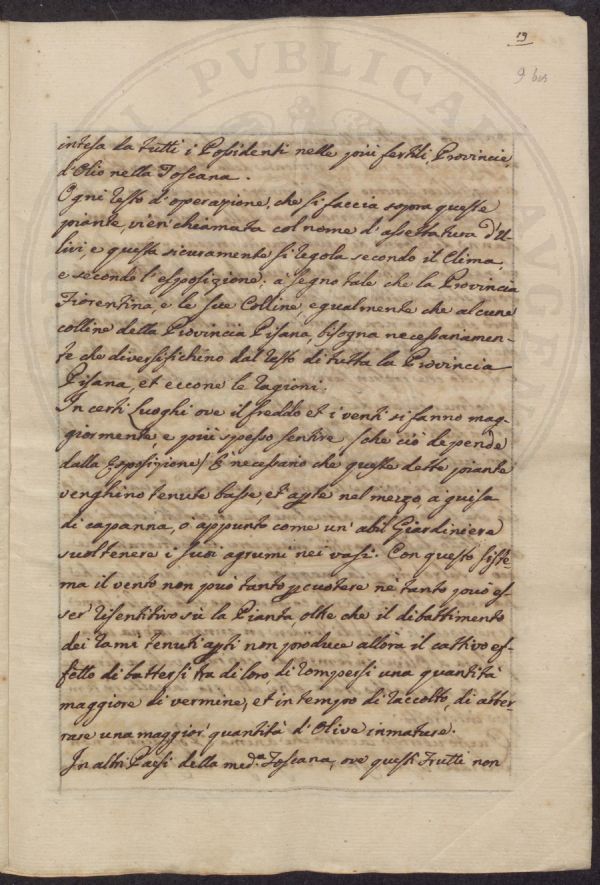 19
9 bis
intesa da tutti i Possidenti nelle più fertili Provincie,
d'Olio nella Toscana.
Ogni resto d'operazione, che si faccia sopra queste
piante, vien chiamata col nome d'assettatura d'U-
livi, e questa sicuramente si regola secondo il Clima,
e secondo l'esposizione; a segno tale che la Provincia
Fiorentina, e le sue Colline, egualmente che alcune
colline della Provincia Pisana, bisogna necessariamen-
te che diversifichino dal resto di tutta la Provincia
Pisana, et eccone le ragioni.
In certi Luoghi ove il freddo et i venti si fanno mag-
giormente, e più spesso sentire (che ciò depende
dalla Esposizione) È necessario che queste dette piante
venghino tenute basse, et apte nel mezzo, a guisa
di capanna, o appunto come un abil Giardiniere
suol tenere i suoi agrumi nei vasi. Con questo siste
ma il vento non può tanto pcuotere nè tanto può es
ser risentitivo sù la Pianta, oltre che il dibattimento
dei rami tenuti apti non produce allora il cattivo ef-
fetto di battersi tra di loro, di rompersi una quantità
maggiore di vermine, et in tempo di raccolto, di atter-
rare una maggior quantità d'Olive inmature.
In altri Paesi della med.ª Toscana, ove questi Frutti non